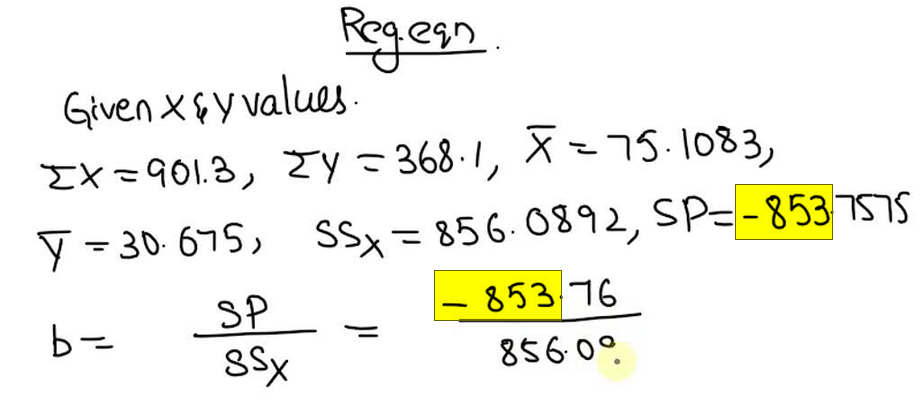 Reg.eqn.
Given X & Y values.
ΣX = 901.3, ΣY = 368.1, X̄ = 75.1083,
Ȳ = 30.675, SSx = 856.0892, SP = -853.7575
b = SP/SSx = -853.76/856.09